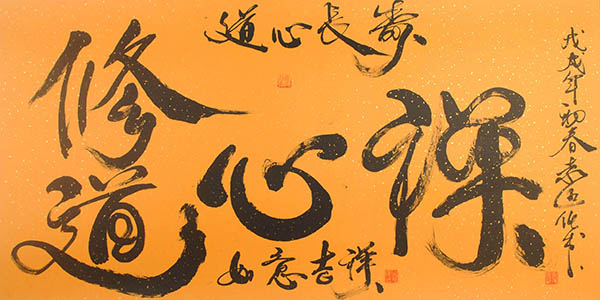 道心長寿
禅
心
修道
如意吉祥
戊戌年初春